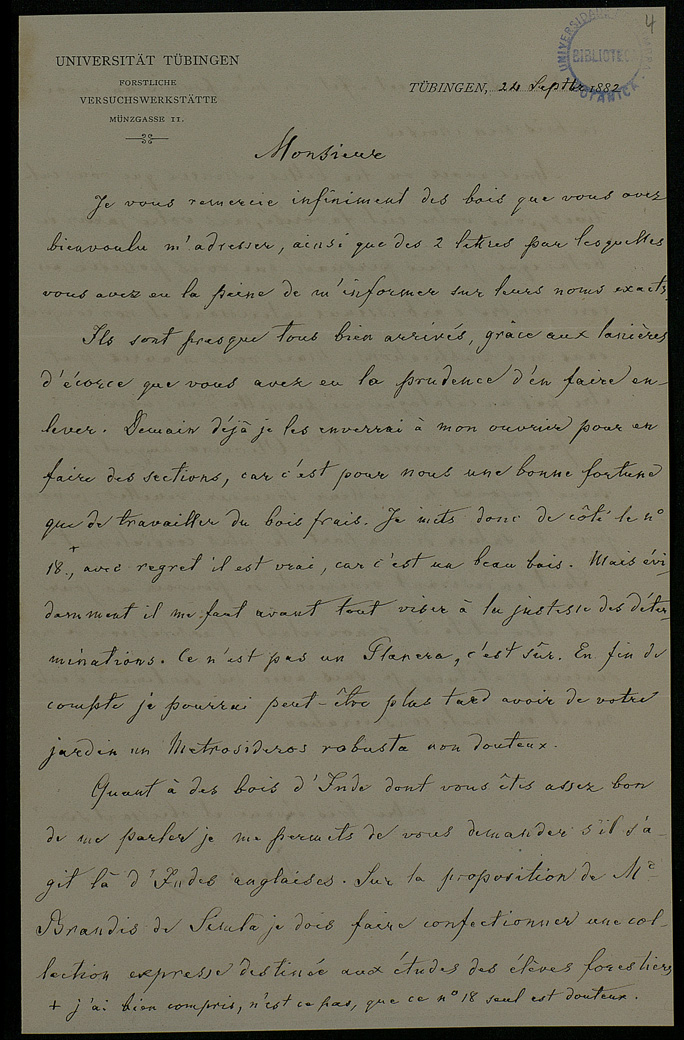 4
UNIVERSITÄT TÜBINGEN
FORSTLICHE
VERSUCHSWERKSTÄTTE
MÜNZGASSE 11.
BIBLIOTECA
BOTANICA
TÜBINGEN, 24 Septbr 1882
Monsieur
Je vous remercie infiniment des bois que vous avez
bienvoulu m'adresser, ainsi que des 2 lettres par lesquelles
vous avez eu la peine de m'informer sur leurs noms exacts.
Ils sont presque tous bien arrivés, grâce aux lanières
d'écorce que vous avez eu la prudence d'en faire en-
lever. Demain déjà je les enverrai à mon ouvrier pour en
faire des sections, car c'est pour nous une bonne fortune
que de travailler du bois frais. Je mets donc de côté le n°
18+, avec regret il est vrai, car c'est un beau bois. Mais évi
damment il me faut avant tout viser à la justesse des déter-
minations. Ce n'est pas un Planera, c'est sûr. En fin de
compte je pourrai peut-être plus tard avoir de votre
jardin un Metrosideros robusta non douteux.
Quant à des bois d'Inde dont vous êtes assez bon
de me parler je me permets de vous demander s'il s'a-
git là d'Indes anglaises. Sur la proposition de Mr
Brandis de Simla je dois faire confectionner une col-
lection expresse destinée aux études des élèves forestiers
+ j'ai bien compris, n'est ce pas, que ce n° 18 seul est douteux.